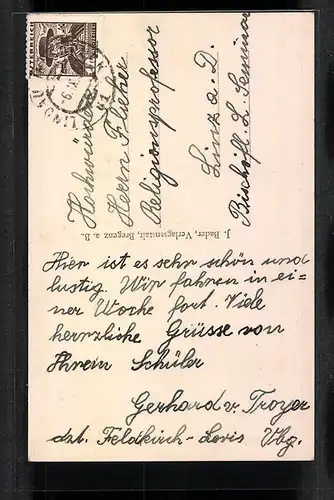 ÖSTERREICH
Hochwürden
Herrn Flieher
Religionsprofessor
Linz a. D.
Bischöfl. L. Seminar
J. Bader, Verlagsanstalt, Bregenz a. B.
Hier ist es sehr schön und
lustig. Wir fahren in ei-
ner Woche fort. Viele
herrzliche Grüsse von
Ihrein Schüler
Gerhard v. Troyer
dzt. Feldkirch-Levis Vbg.